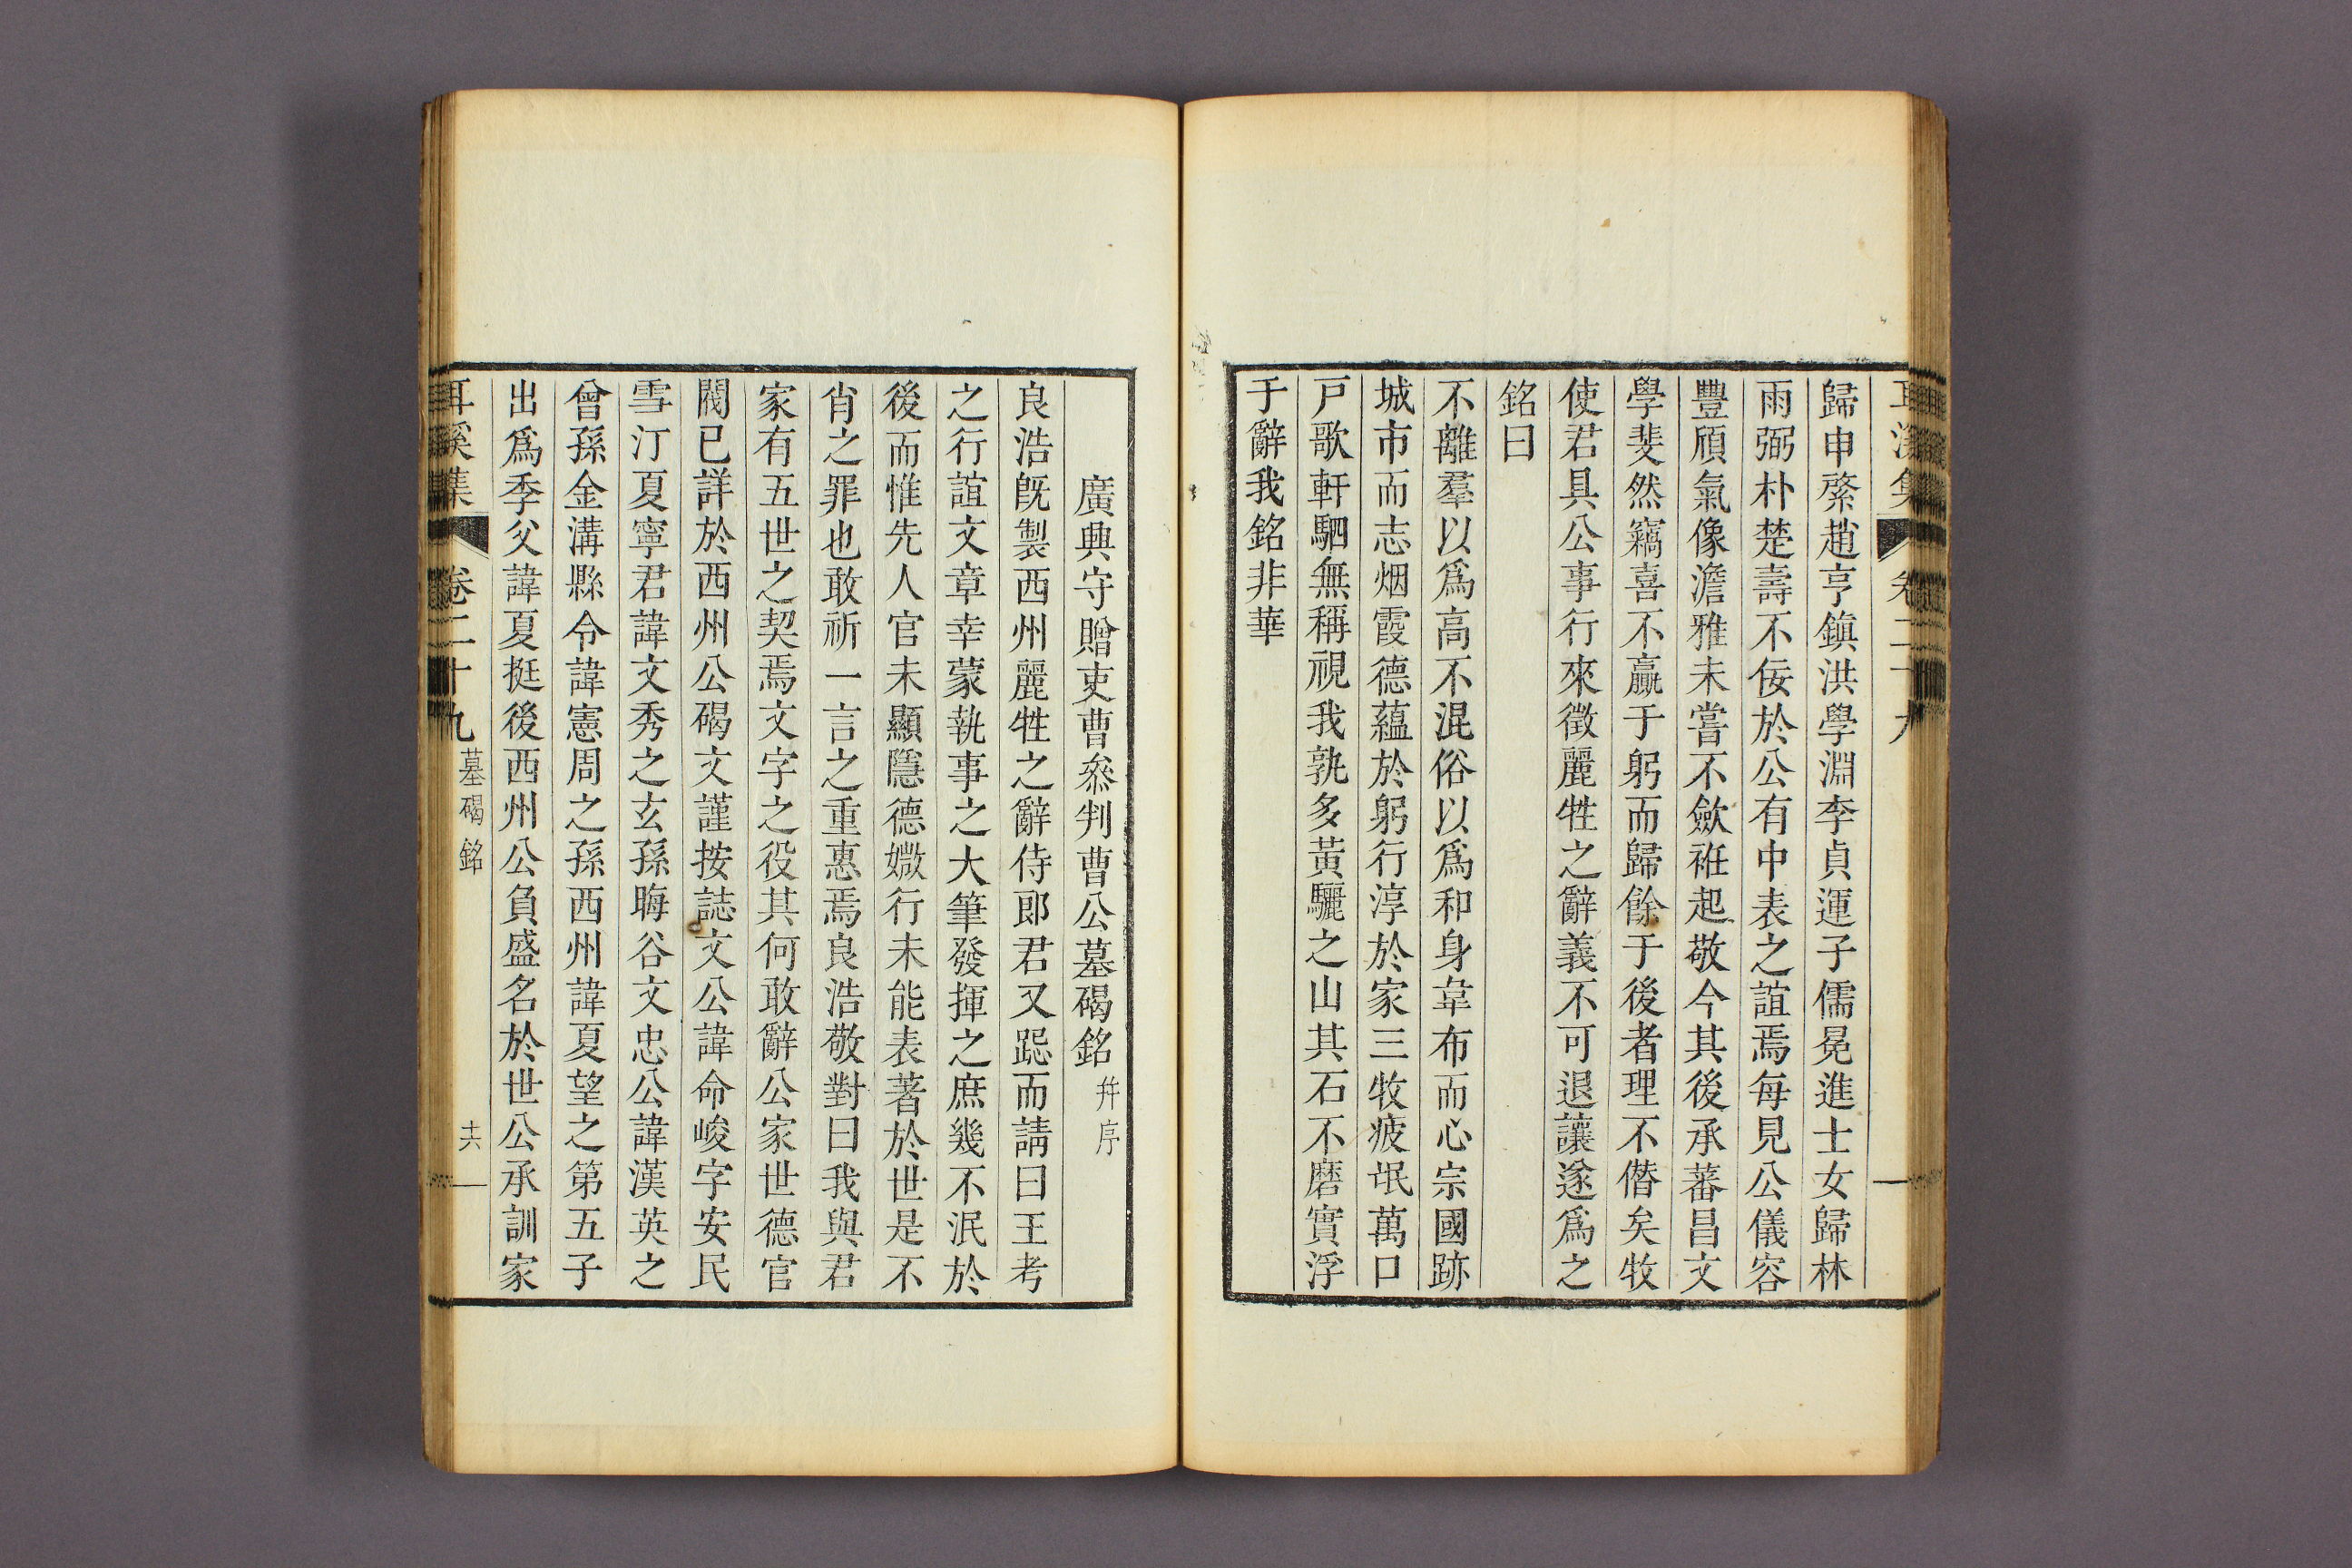 歸申綮趙亨鎭洪學淵李貞運子儒冕進士女歸林
雨弼朴楚壽不佞於公有中表之誼焉每見公儀容
豐頎氣像澹雅未嘗不歛袵起敬今其後承蕃昌文
學斐然竊喜不贏于躬而歸餘于後者理不僭矣牧
使君具公事行來徵麗牲之辭義不可退讓遂爲之
銘曰
不離羣以爲高不混俗以爲和身韋布而心宗國跡
城市而志烟霞德蘊於躬行淳於家三牧疲氓萬口
戶歌軒駟無稱視我孰多黃驪之山其石不磨實浮
于辭我銘非華
廣興守贈吏曹叅判曹公墓碣銘 幷序
良浩旣製西州麗牲之辭侍郎君又跽而請曰王考
之行誼文章幸蒙執事之大筆發揮之庶幾不泯於
後而惟先人官未顯隱德媺行未能表著於世是不
肖之罪也敢祈一言之重惠焉良浩敬對曰我與君
家有五世之契焉文字之役其何敢辭公家世德官
閥已詳於西州公碣文謹按誌文公諱命峻字安民
雪汀夏寧君諱文秀之玄孫晦谷文忠公諱漢英之
曾孫金溝縣令諱憲周之孫西州諱夏望之第五子
出爲季父諱夏挺後西州公負盛名於世公承訓家
耳溪集 卷二十九 墓碣銘 十六